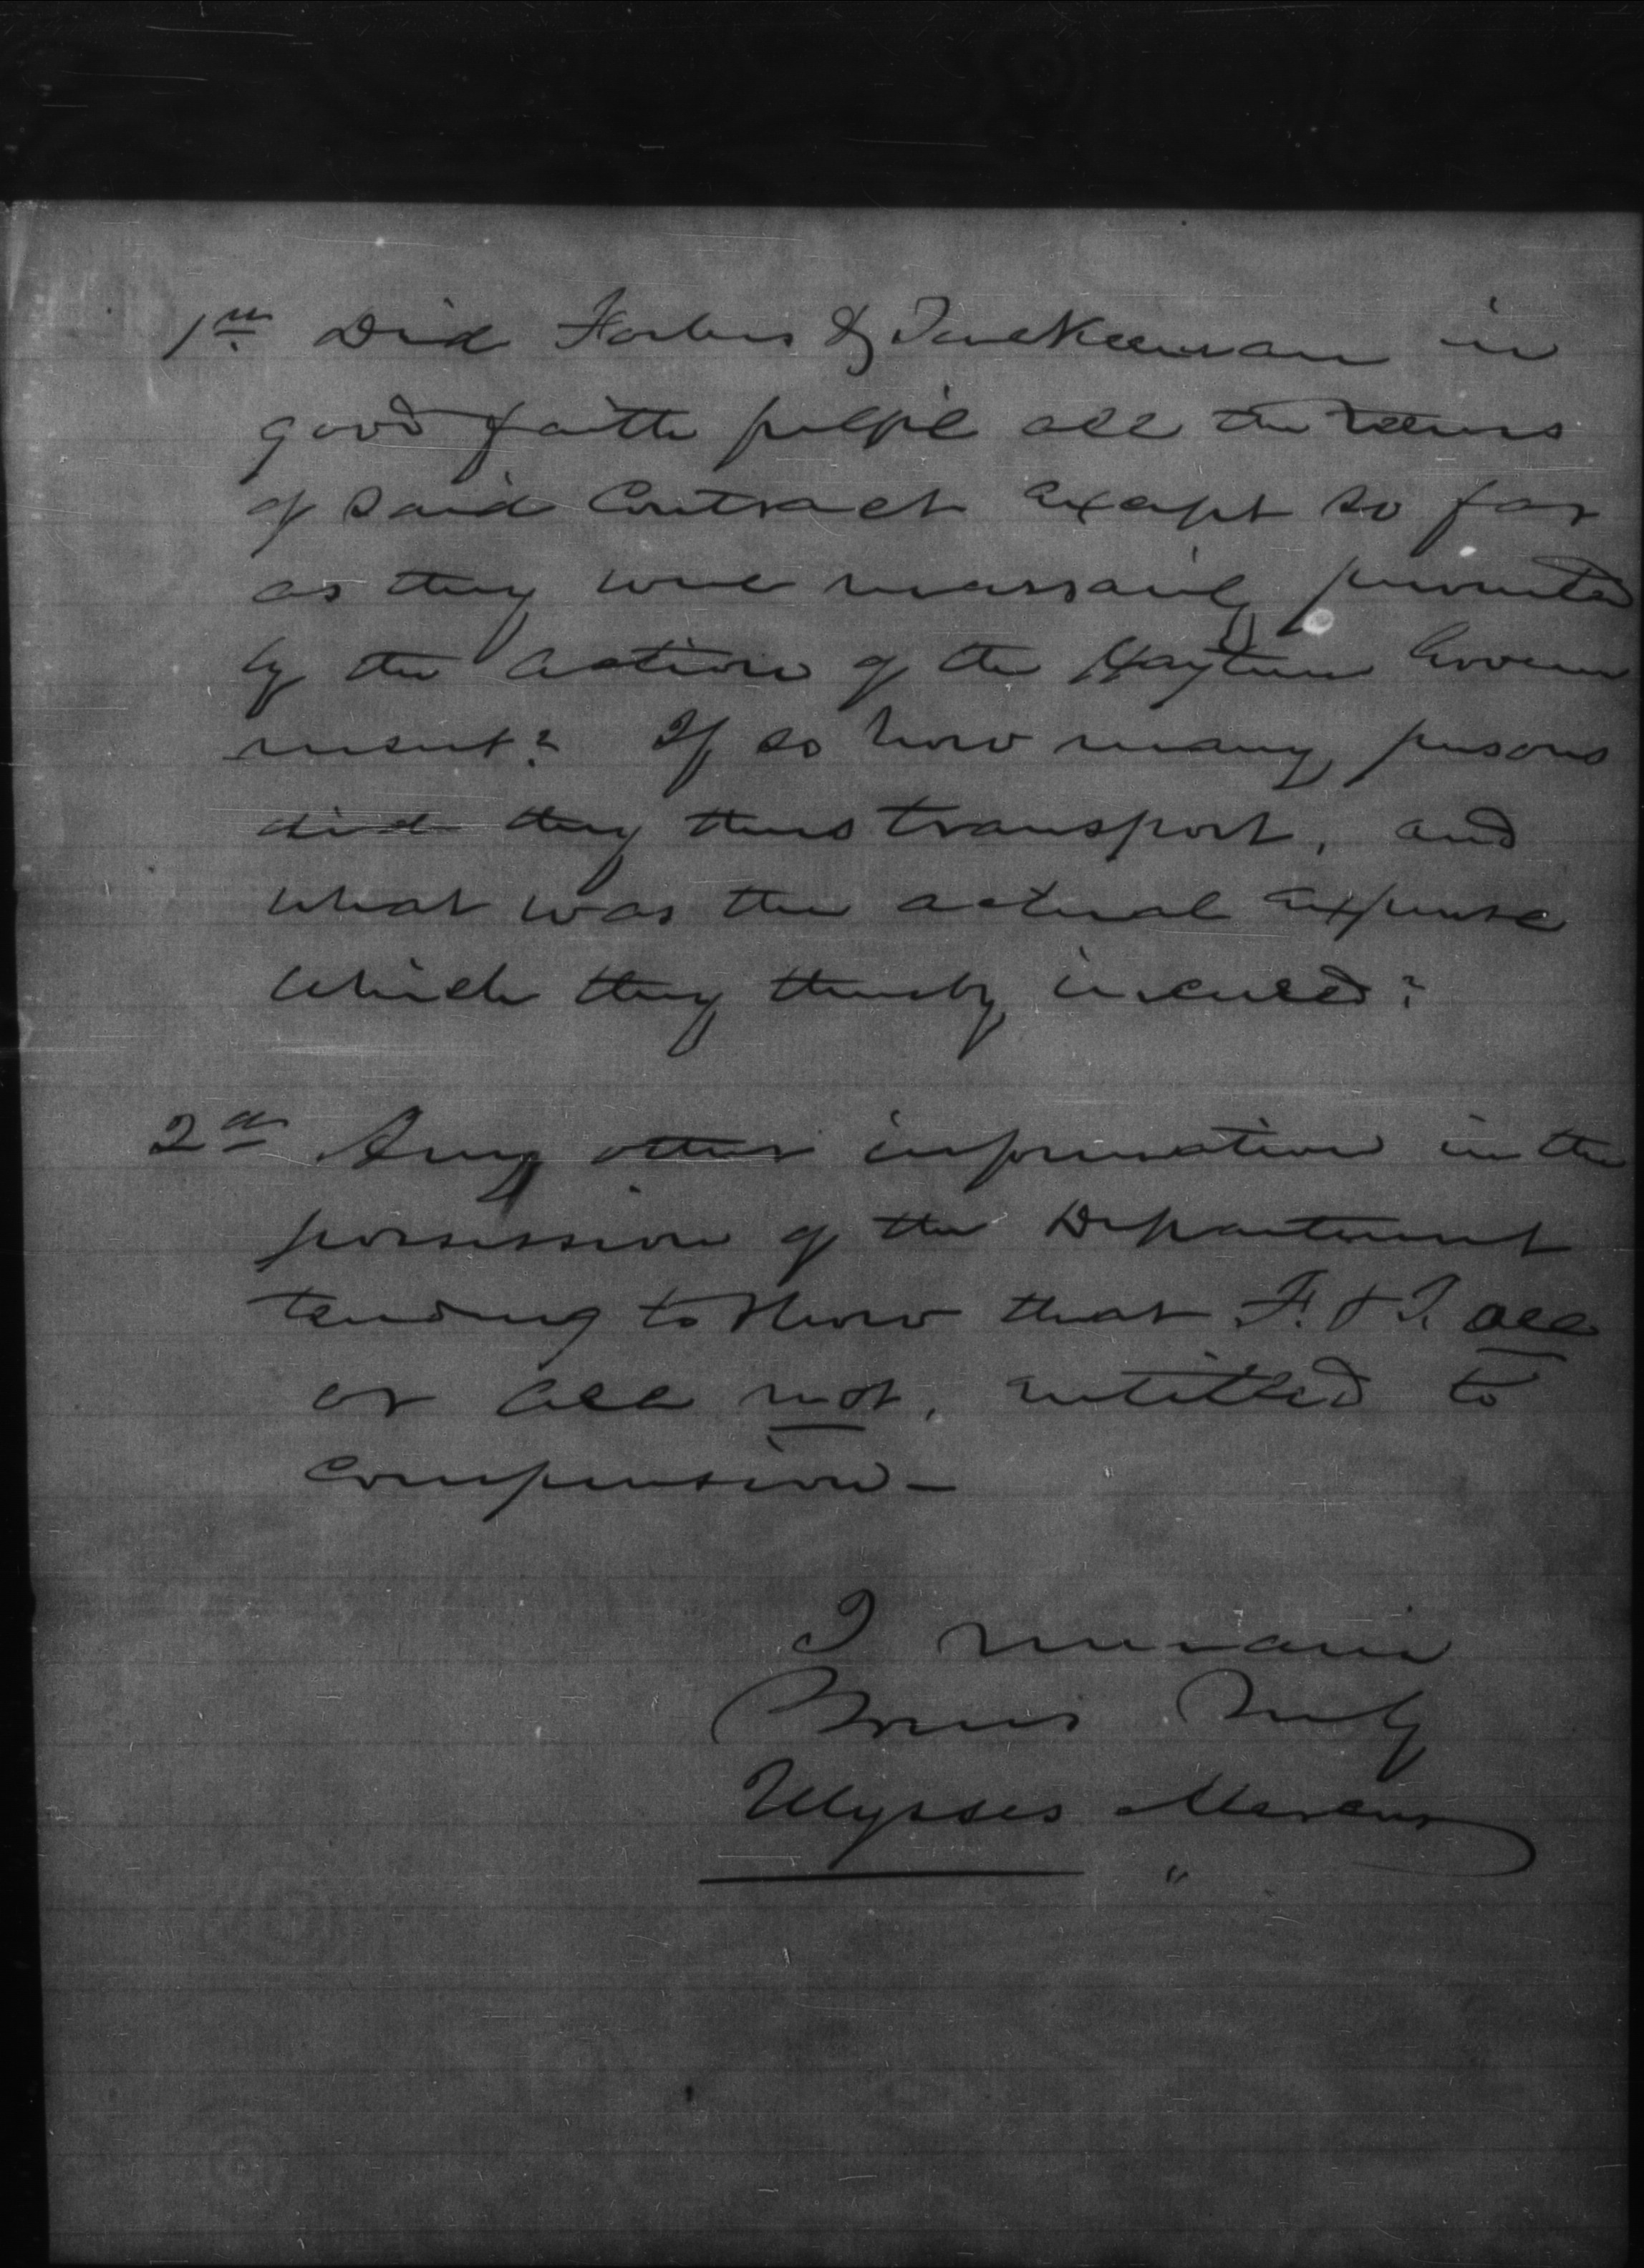 1st Did Forbes & Tuckerman in
good faith fulfil all the terms
of said Contract except so far
as they were necessarily prevented
by the action of the Haytien Govern
ment? If so how many persons
did they thus transport, and
what was the actual expense
which they thereby incurred?
2d Any other information in the
possession of the Department
tending to show that F. & T. are
or are not, entitled to
compension —
I remain
Yours Truly
Ulysses Mercur